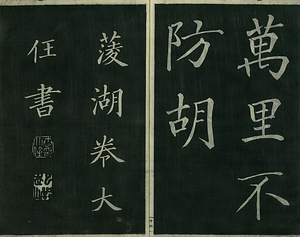 萬里不
防胡
菱湖卷大
任書